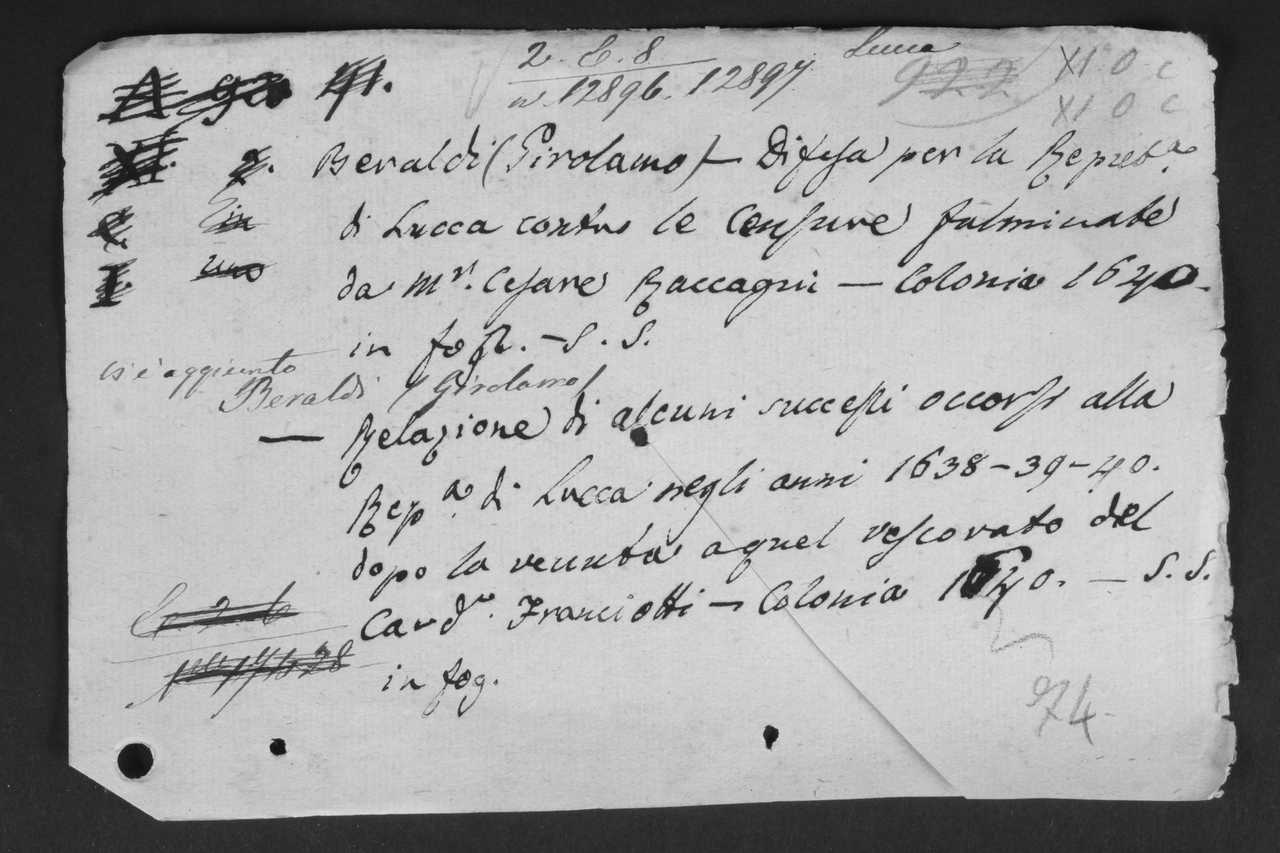 2. E. 8 Lucca
n. 12896. 12897. 922 XI O C
XI O C
Beraldi (Girolamo) — Difesa per la Repub.a
di Lucca contro le Censure fulminate
da Mr. Cesare Raccagni — Colonia 1640.
in fogl. — S. S.
vi è aggiunto
Beraldi (Girolamo)
— Relazione di alcuni successi occorsi alla
Rep.a di Lucca negli anni 1638-39-40.
dopo la venuta a quel vescovato del
Card. Franciotti — Colonia 1640. — S. S.
in fog.
974